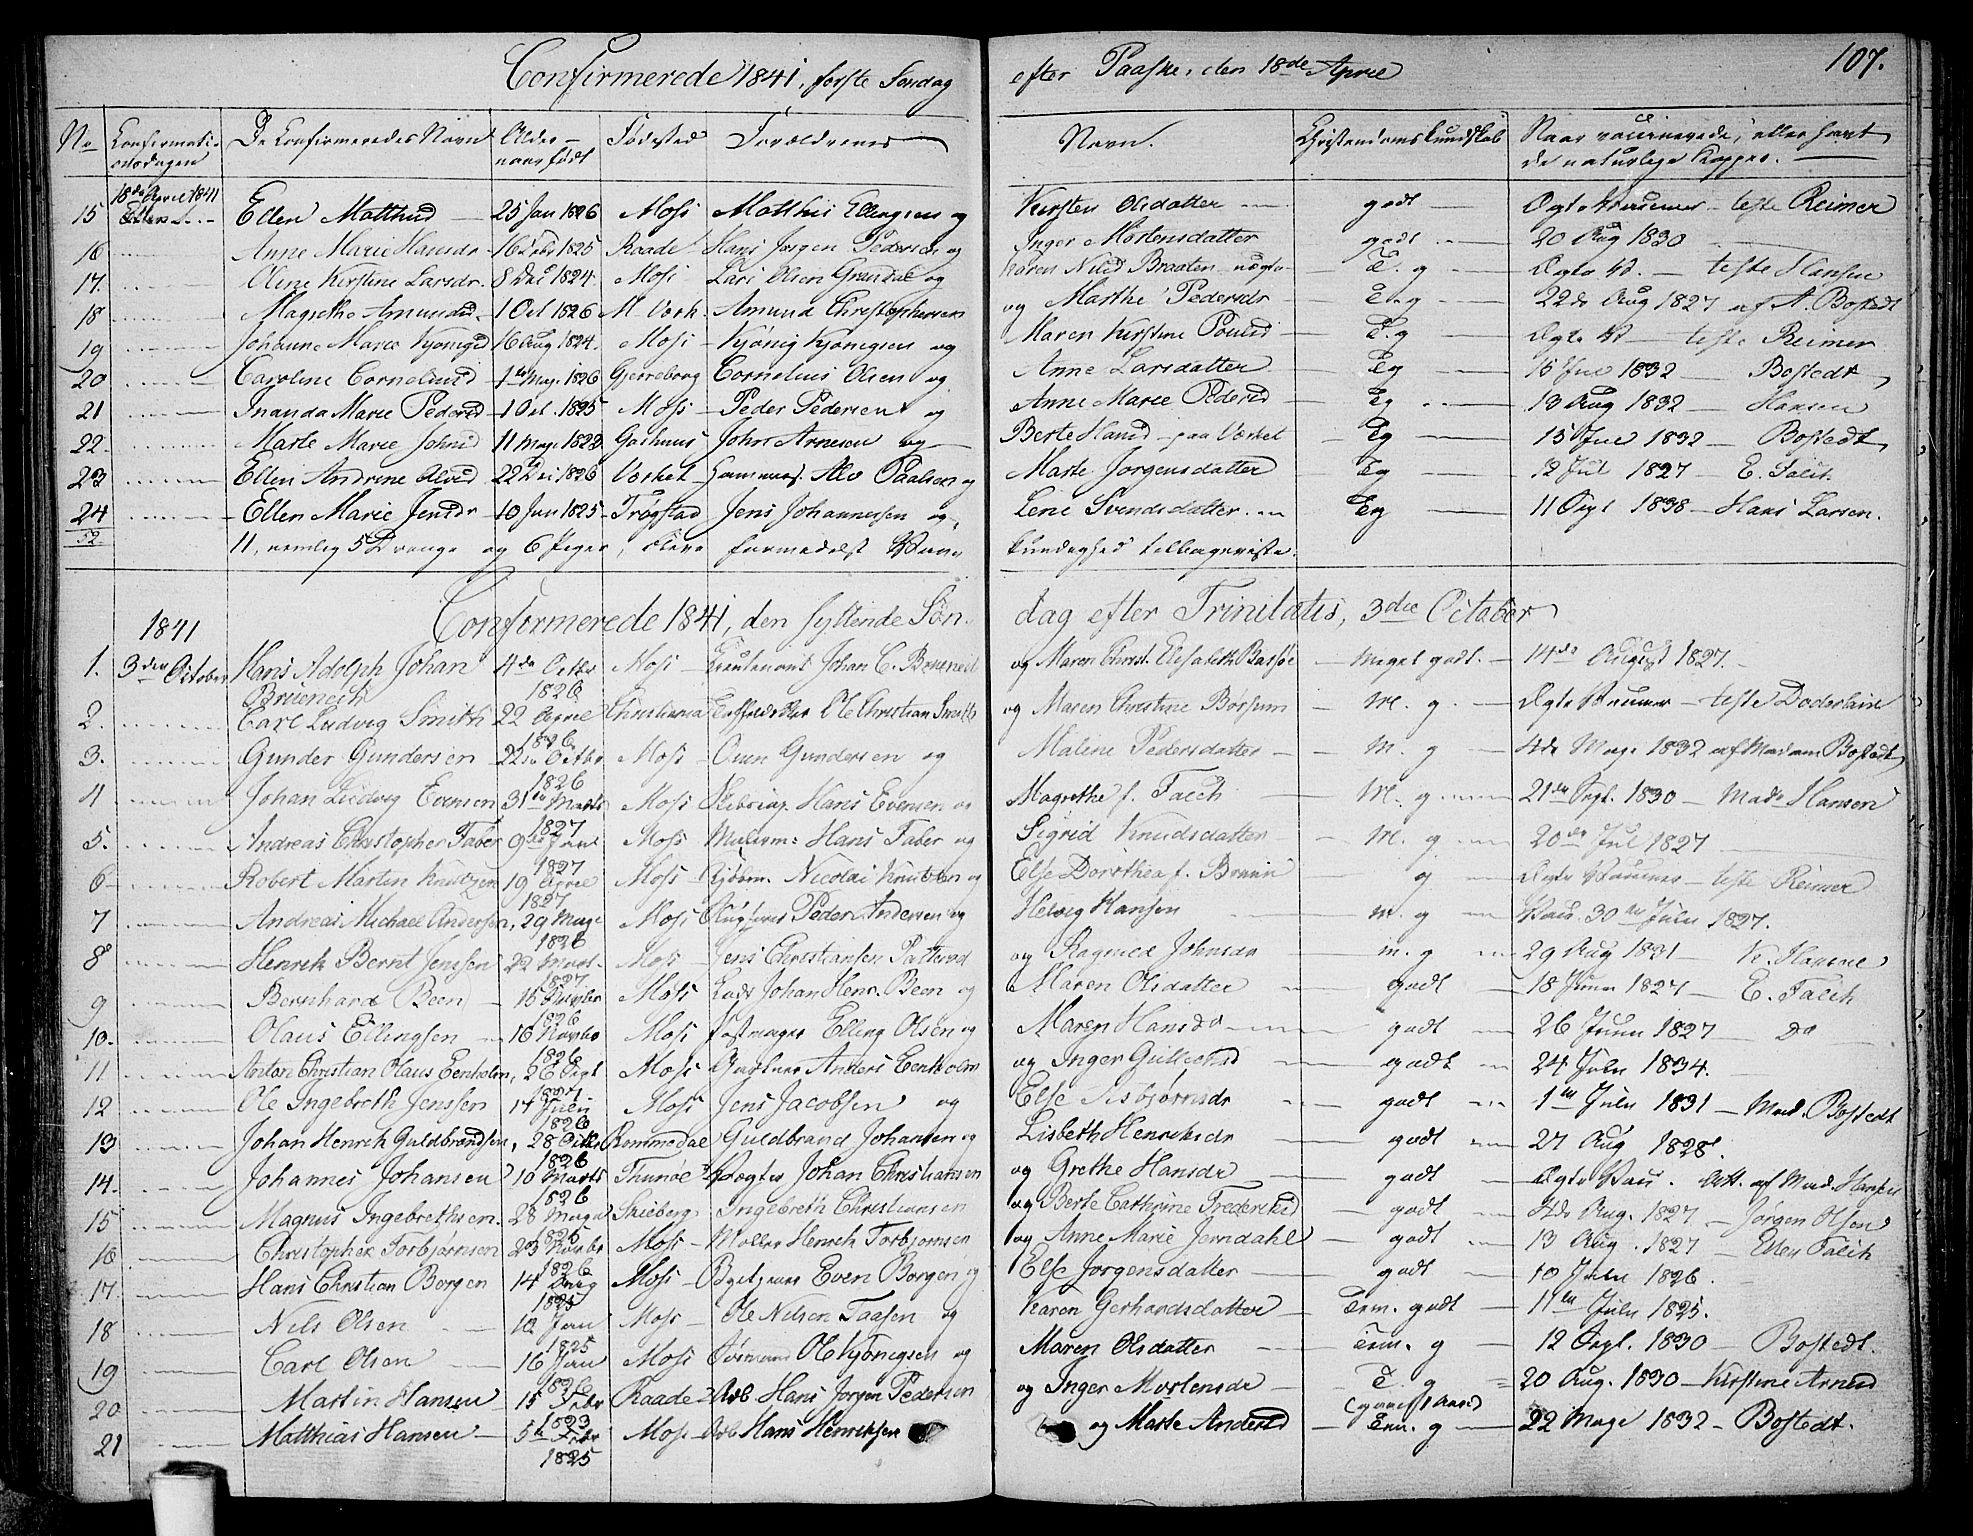 Confirmerede 1841, første Søndag efter Paaske, den 18de April 107.
No Confirmationsdagen De Confirmeredes Navn Alder naar født Fødested Forældrenes Navn. Christendomskundskab Naar vaccinerede, eller havt de naturlige Kopper.
18de April 1841
15 Ellen Matthisd 25 Jan 1826 Moss Matthis Ellingsen og Kirsten Olsdatter godt teste Reimer
16 Anne Marie Hansdr 16 Febr 1825 Raade Hans Jørgen Pedersen og Inger Mortensdatter godt 20 Aug 1830
17. Oline Kirstine Larsdr. 8 Dec 1824. Moss Lars Olsen Grøndal og Karen Braaten T. g teste Hansen
18 Magrethe Amundsd. 1 Oct 1826 M. Værk. Amund Christophersen og Marthe Pedersdr T. g 22de Aug 1827 af A. Bostedt
19 Johanne Marie 16 Aug 1824. Moss og Maren Kirstine Poulsd T. g teste Reimer
20 Caroline Corneliusd 1te May 1826 Gjerreborg Cornelius Olsen og Anne Larsdatter Tg 15 Jul 1832 Bostedt
21 Inanda Marie Pedersd 1 Oct. 1825 Moss Peder Pedersen og Anne Marie Pedersd Tg 13 Aug 1832 Hansen
22 Marte Marie Johnsd 11 May 1822 John Arnesen og Berte Hansd paa Værket Tg 15 Jul 1832 Bostedt
23 Ellen Andrine Alvsd 22 Dec 1826 Værket Alv Paalsen og Marte Jørgensdatter Tg 12 Jul 1827 E. Falch
24 Ellen Marie Jensdr 10 Jan 1825 Trøgstad Jens Johannessen og Lene Svendsdatter Tg 11 Sept 1838 Hans Larsen.
52. 11, nemlig 5 Drenge og 6 Piger, bleve formedelst Uvankundighed tilbageviste.
Confirmerede 1841, den syttende Søndag efter Trinitatis, 3die October
1841
1. 3die October Hans Adolph Johan Bruenech 4de Octbr 1826 Moss Lieutenant Johan C. Bruenech og Maren Christ. Elisabeth Bassøe Meget godt. 14de August 1827.
2. Carl Ludvig Smith 22 April 1826 Christiania Ole Christian Smith og Maren Christine Børsum M. g. teste Døderlein
3. Gunder Gundersen 22de Octbr 1826 Moss Gundersen og Maline Pedersdatter M. g 4de May 1832 af Madam Bostedt
4 Johan Ludvig Evensen 31te Marts 1827 Moss Skibscap. Hans Evensen og Magrethe f. Falch M. g 21de Sept. 1830 Mad. Hansen
5. Andreas Christopher Faber 9de Jan 1827 Moss Hans Faber og Sigrid Knudsdatter M. g 20de Jul 1827
6 Robert Martin Knutzen 19 April 1827 Moss Kjøbm. Nicolai Knutzen og Else Dorothea f. Bruun g teste Reimer
7 Andreas Michael Andersen, 29 May 1826 Moss Peder Andersen og Helvig Hansen m. g Vac. 30te Julii 1827.
8 Henrik Bernt Jenssen 22 Marts 1827 Moss Jens Christiansen og Johnsdr m. g 29 Aug 1831
9 Bernhard Been 15 1826 Moss Lods Johan Henr. Been og Maren Olsdatter godt 18 Juni 1827 E. Falch
10. Olaus Ellingsen 16 Novbr 1826 Moss Elling Olsen og Maren Hansdr godt 26 Juni 1827 Do
11 Anton Christian Olaus Eenholm, 26 Sept 1827 Moss Anders Eenholm og Inger godt 24 Julii 1834.
12 Ole Ingebreth Jenssen 17 Julii 1826 Moss Jens Jacobsen og Else Asbjørnsdr godt 1te Julii 1831 Mad. Bostedt
13 Johan Henrik Guldbrandsen, 28 Octbr 1826 Rommedal Guldbrand Johansen og Lisbeth Henriksdr godt 27 Aug 1828.
14. Johannes Johansen 10 Marts 1826 Thunøe Johan Christiansen og Grethe Hansdr godt Att. af Mad. Hansen
15 Magnus Ingebrethsen. 28 May 1825 Skieberg Ingebreth Christiansen og Berte Cathrine Frederiksd godt 4de Aug. 1827 Jørgen Olsen
16 Christopher Torbjørnsen 23 Novbr 1826 Moss Møller Henrik Torbjørnsen og Anne Marie Jerndahl godt 13 Aug. 1827 Ellen Falch
17. Hans Christian Borgen 14 1825 Moss Even Borgen og Else Jørgensdatter godt 10 Julii 1826.
18 Nils Olsen 10 Jan 1825 Moss Ole Nilsen Taasen og Karen Gerhardsdatter Tem. godt 11te Julii 1825.
19 Carl Olsen 16 Jan 1826 Moss og Maren Olsdatter Tem. g 12 Sept. 1830 Bostedt.
20 Martin Hansen 15 Febr 1823 Raade Arb. Hans Jørgen Pedersen og Inger Mortensdr T. g 20 Aug. 1830 Kirstine Arnesd
21 Matthias Hansen 5te Febr 1825 Moss Arb. Hans Henriksen og Marte Andersd Tem. g 22 May 1832 Bostedt.